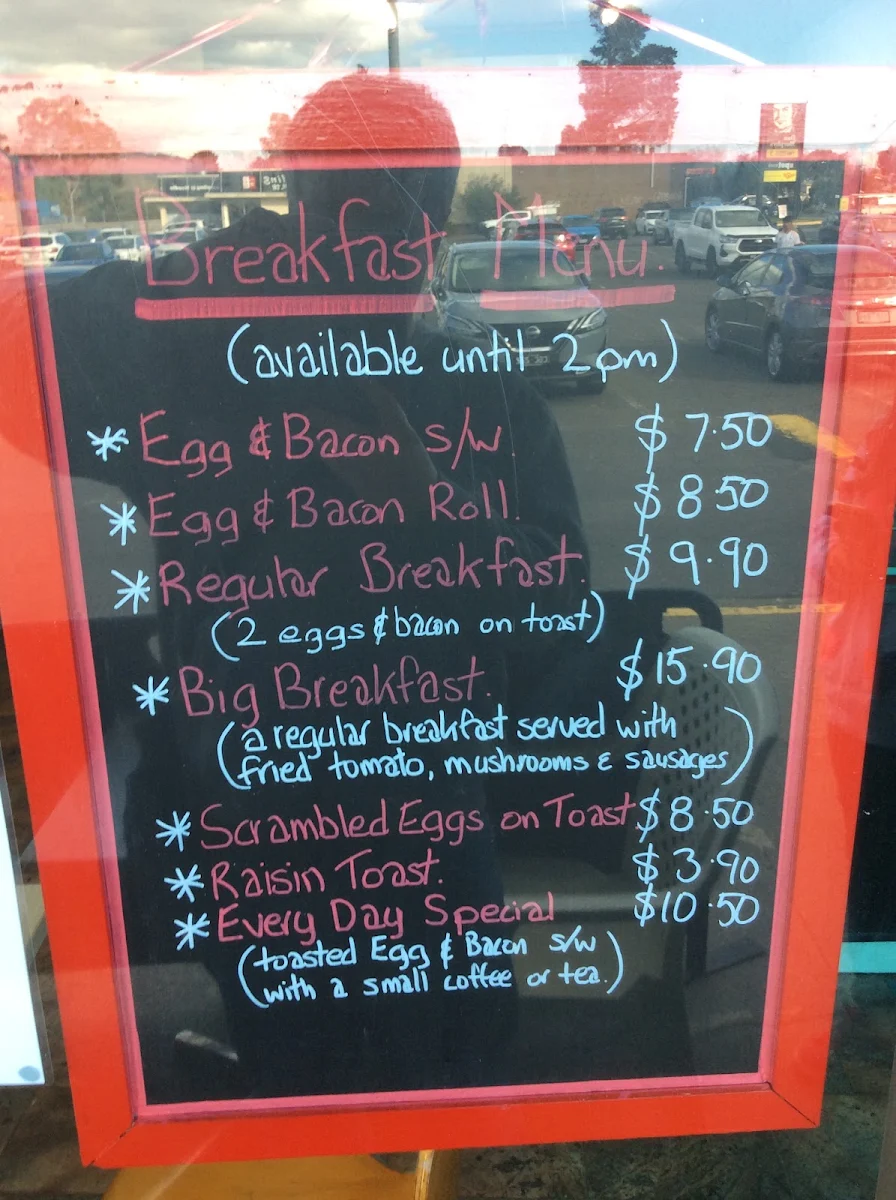 Breakfast Menu.
(available until 2pm)
* Egg & Bacon s/w. $7.50
* Egg & Bacon Roll. $8.50
* Regular Breakfast. $9.90
(2 eggs & bacon on toast)
* Big Breakfast. $15.90
(a regular breakfast served with
fried tomato, mushrooms & sausages)
* Scrambled Eggs on Toast $8.50
* Raisin Toast. $3.90
* Every Day Special $10.50
(toasted Egg & Bacon s/w
with a small coffee or tea.)